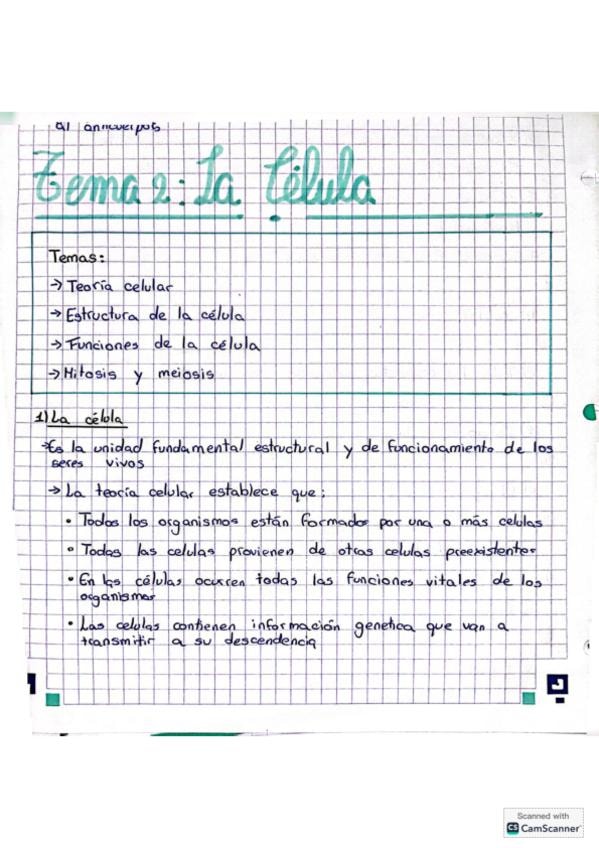 a/ annuerpos
Tema 2: La Célula
Temas:
→ Teoría celular
→ Estructura de la célula
→ Funciones de la célula
→ Mitosis y meiosis
1) La célula
→ Es la unidad fundamental estructural y de funcionamiento de los
seres vivos
→ La teoría celular establece que:
• Todos los organismos están formados por una o más celulas
• Todas las celulas provienen de otras celulas preexistentes
• En las células ocurren todas las funciones vitales de los
organismos
• Las celulas contienen información genetica que van a
transmitir a su descendencia
Scanned with
CS CamScanner